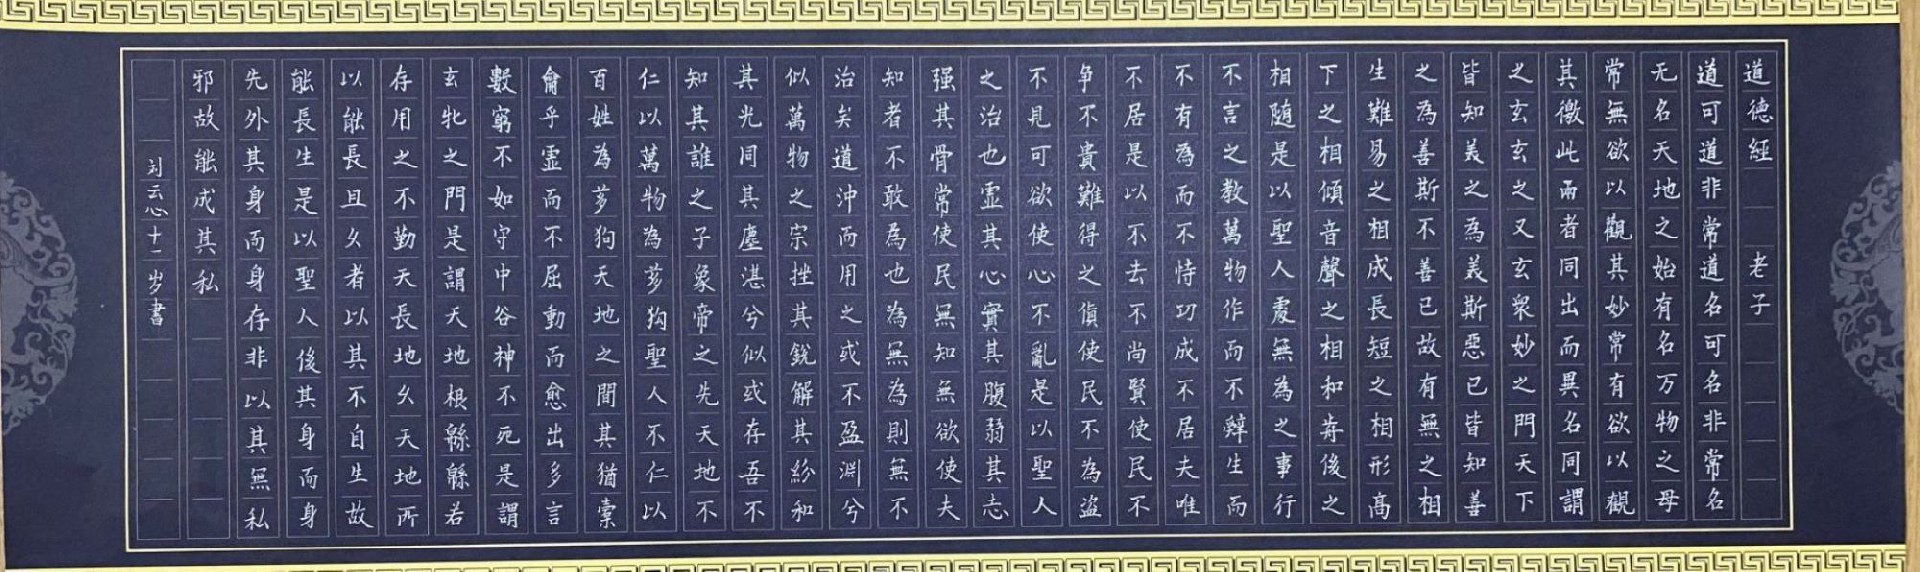 道德經 老子
道可道非常道名可名非常名
无名天地之始有名万物之母
常無欲以觀其妙常有欲以觀
其徼此兩者同出而異名同謂
之玄玄之又玄衆妙之門天下
皆知美之為美斯惡已皆知善
之為善斯不善已故有無之相
生難易之相成長短之相形高
下之相傾音聲之相和前後之
相隨是以聖人處無為之事行
不言之教萬物作而不辭生而
不有為而不恃功成不居夫唯
不居是以不去不尚賢使民不
争不貴難得之貨使民不為盜
不見可欲使心不亂是以聖人
之治也虛其心實其腹弱其志
强其骨常使民無知無欲使夫
知者不敢為也為無為則無不
治矣道沖而用之或不盈淵兮
似萬物之宗挫其銳解其紛和
其光同其塵湛兮似或存吾不
知其誰之子象帝之先天地不
仁以萬物為芻狗聖人不仁以
百姓為芻狗天地之間其猶橐
龠乎虛而不屈動而愈出多言
數窮不如守中谷神不死是謂
玄牝之門是謂天地根緜緜若
存用之不勤天長地久天地所
以能長且久者以其不自生故
能長生是以聖人後其身而身
先外其身而身存非以其無私
邪故能成其私
刘云心十一岁書